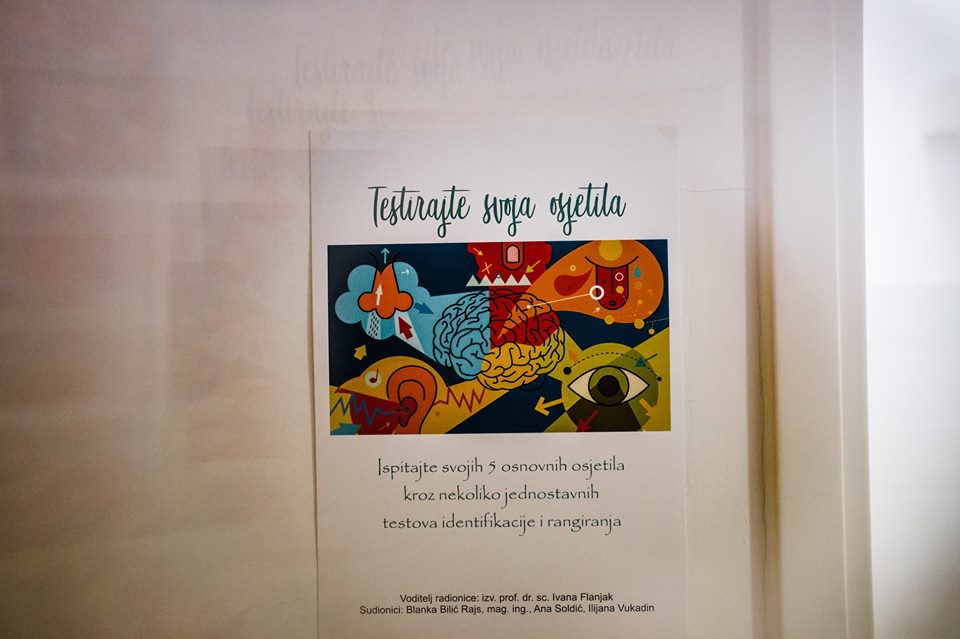 Testirajte svoja osjetila
Ispitajte svojih 5 osnovnih osjetila
kroz nekoliko jednostavnih
testova identifikacije i rangiranja
Voditelj radionice: izv. prof. dr. sc. Ivana Flanjak
Sudionici: Blanka Bilić Rajs, mag. ing., Ana Soldić, Ilijana Vukadin